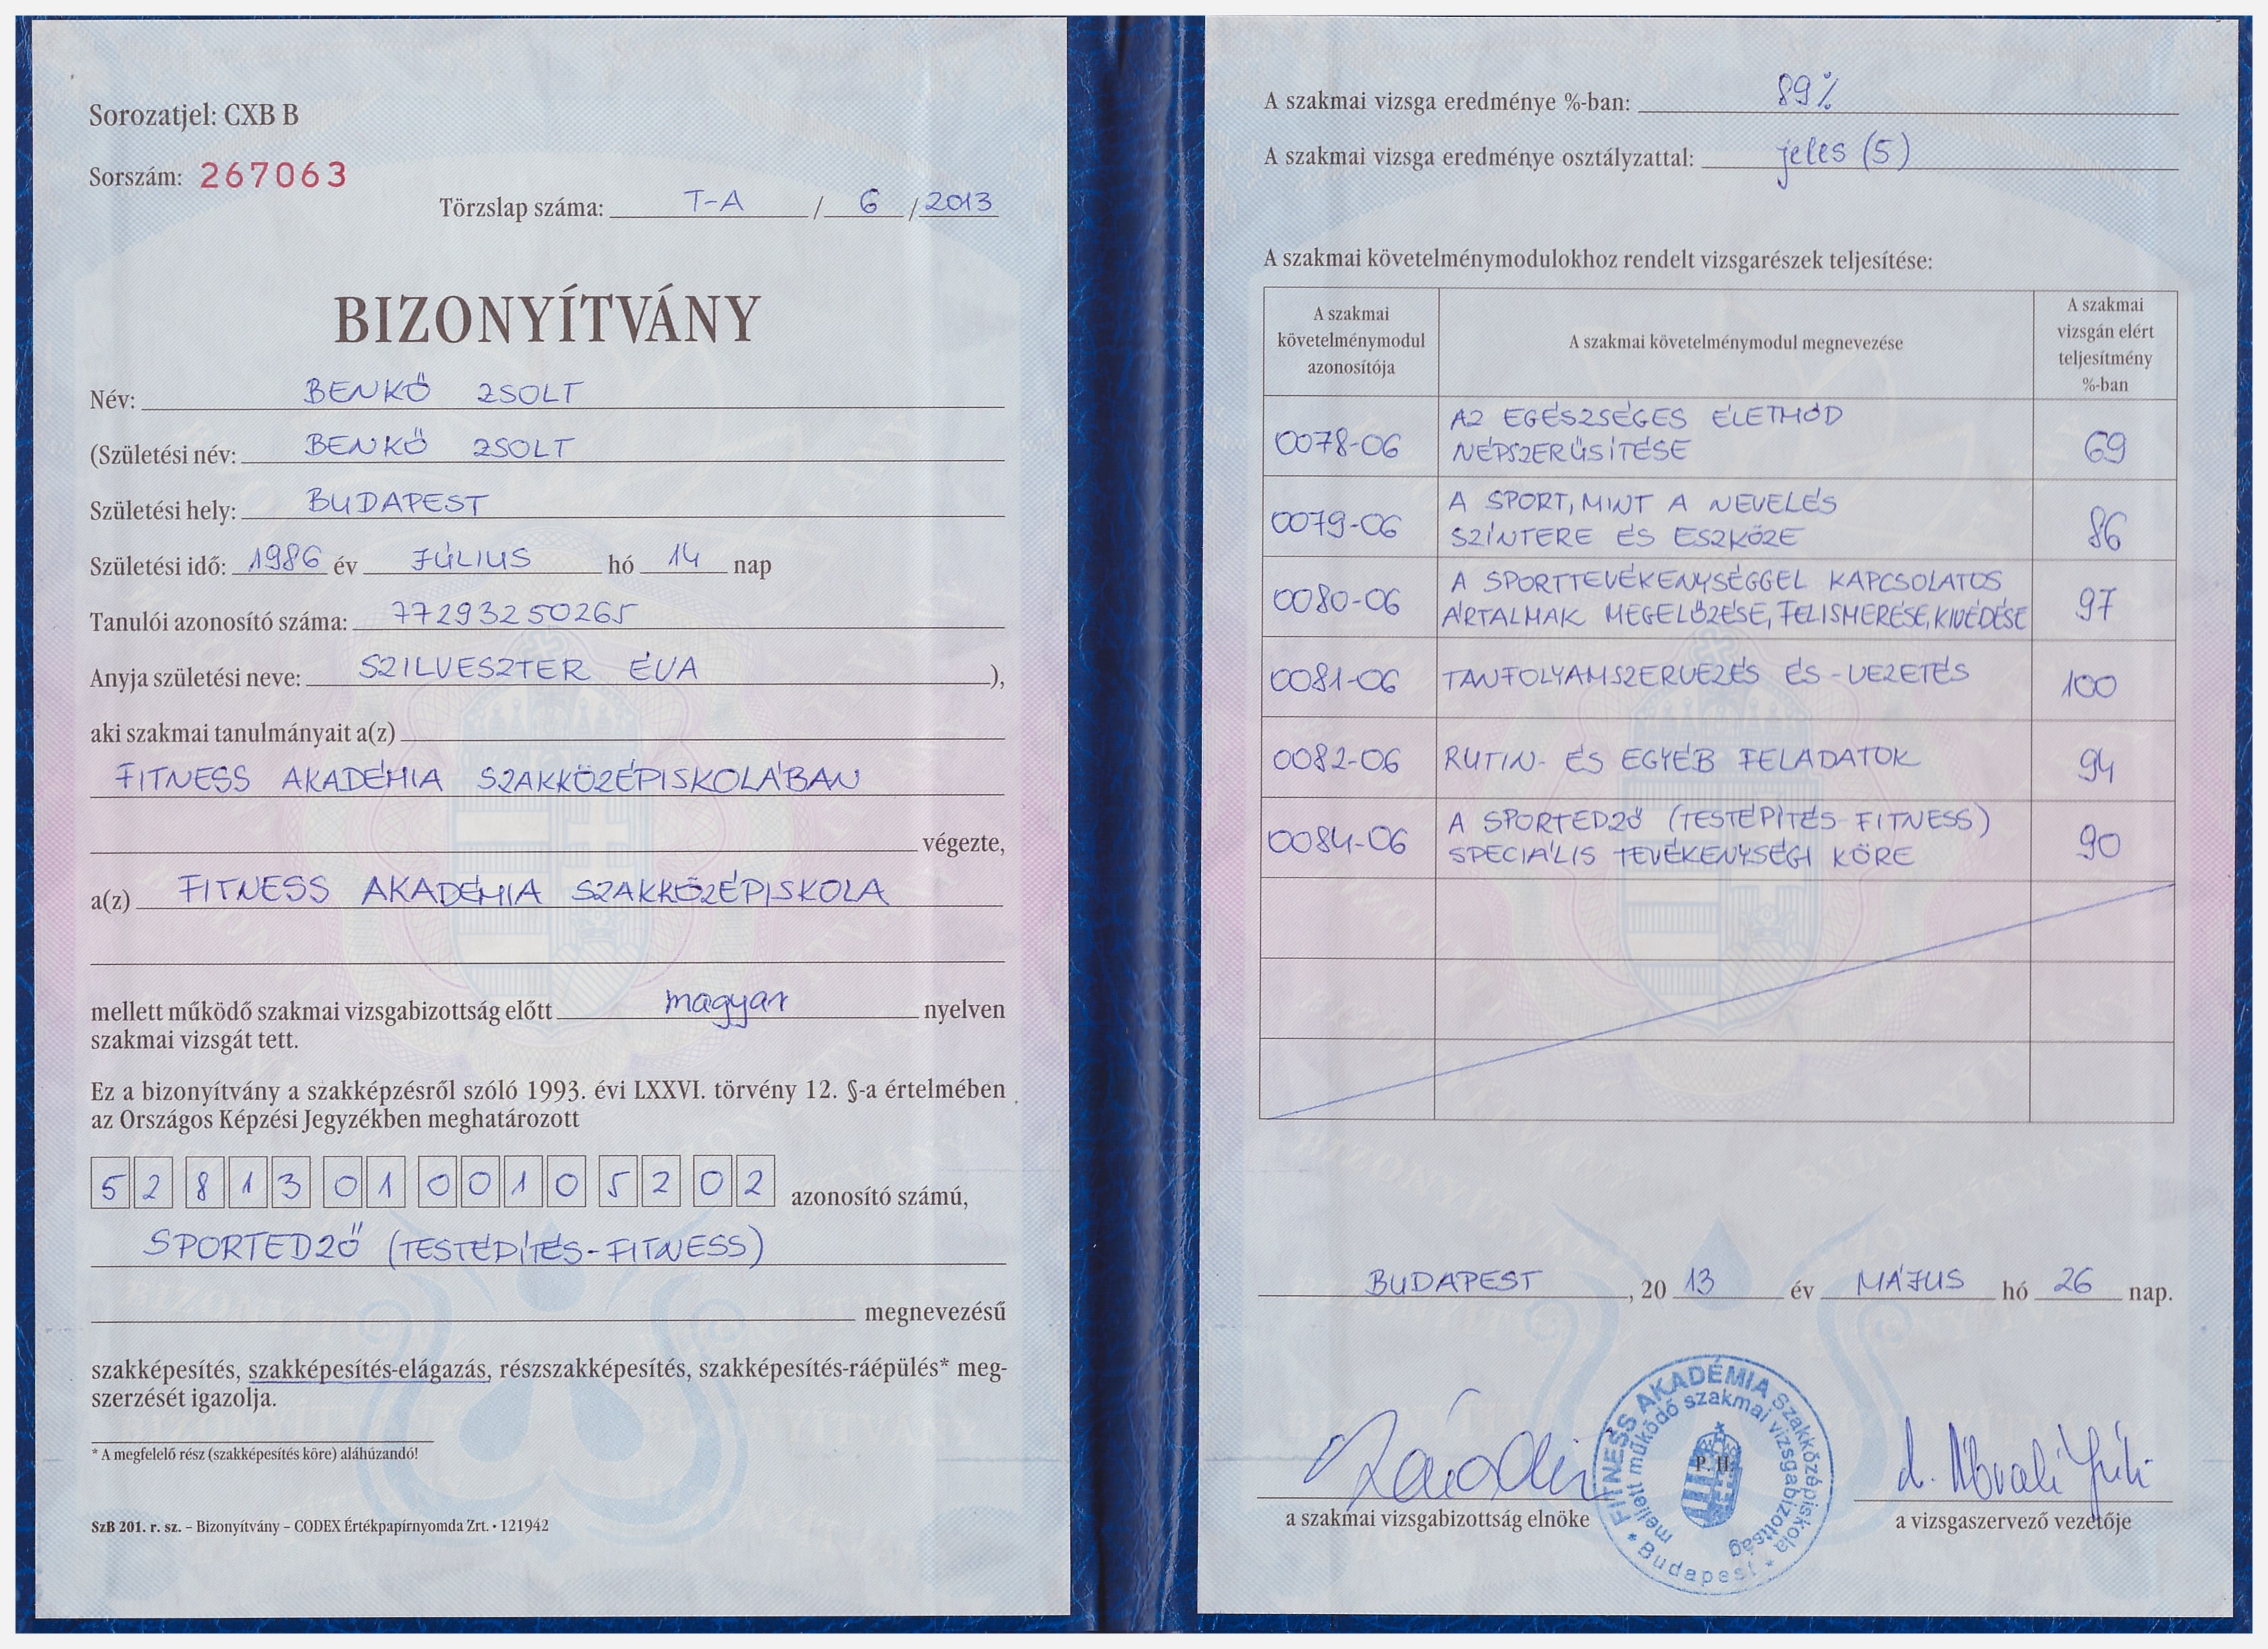 Sorozatjel: CXB B
Sorszám: 267063
Törzslap száma: T-A / 6 / 2013
BIZONYÍTVÁNY
Név: BENKŐ ZSOLT
(Születési név: BENKŐ ZSOLT
Születési hely: BUDAPEST
Születési idő: 1986 év JÚLIUS hó 14 nap
Tanulói azonosító száma: 77293250265
Anyja születési neve: SZILVESZTER ÉVA ),
aki szakmai tanulmányait a(z)
FITNESS AKADÉMIA SZAKKÖZÉPISKOLÁBAN
végezte,
a(z) FITNESS AKADÉMIA SZAKKÖZÉPISKOLA
mellett működő szakmai vizsgabizottság előtt magyar nyelven
szakmai vizsgát tett.
Ez a bizonyítvány a szakképzésről szóló 1993. évi LXXVI. törvény 12. §-a értelmében
az Országos Képzési Jegyzékben meghatározott
52 813 01 0010 52 02 azonosító számú,
SPORTEDZŐ (TESTÉPÍTÉS-FITNESS)
megnevezésű
szakképesítés, szakképesítés-elágazás, részszakképesítés, szakképesítés-ráépülés* meg-
szerzését igazolja.
* A megfelelő rész (szakképesítés köre) aláhúzandó!
SzB 201. r. sz. – Bizonyítvány – CODEX Értékpapírnyomda Zrt. • 121942
A szakmai vizsga eredménye %-ban: 89%
A szakmai vizsga eredménye osztályzattal: jeles (5)
A szakmai követelménymodulokhoz rendelt vizsgarészek teljesítése:
A szakmai követelménymodul azonosítója
A szakmai követelménymodul megnevezése
A szakmai vizsgán elért teljesítmény %-ban
0078-06 AZ EGÉSZSÉGES ÉLETMÓD
NÉPSZERŰSÍTÉSE 69
0079-06 A SPORT, MINT A NEVELÉS
SZÍNTERE ÉS ESZKÖZE 86
0080-06 A SPORTTEVÉKENYSÉGGEL KAPCSOLATOS
ÁRTALMAK MEGELŐZÉSE, FELISMERÉSE, KIVÉDÉSE 97
0081-06 TANFOLYAMSZERVEZÉS ÉS -VEZETÉS 100
0082-06 RUTIN- ÉS EGYÉB FELADATOK 94
0084-06 A SPORTEDZŐ (TESTÉPÍTÉS-FITNESS)
SPECIÁLIS TEVÉKENYSÉGI KÖRE 90
BUDAPEST, 20 13 év MÁJUS hó 26 nap.
FITNESS AKADÉMIA Szakközépiskola
mellett működő szakmai vizsgabizottság
* Budapest *
P. H.
a szakmai vizsgabizottság elnöke
a vizsgaszervező vezetője